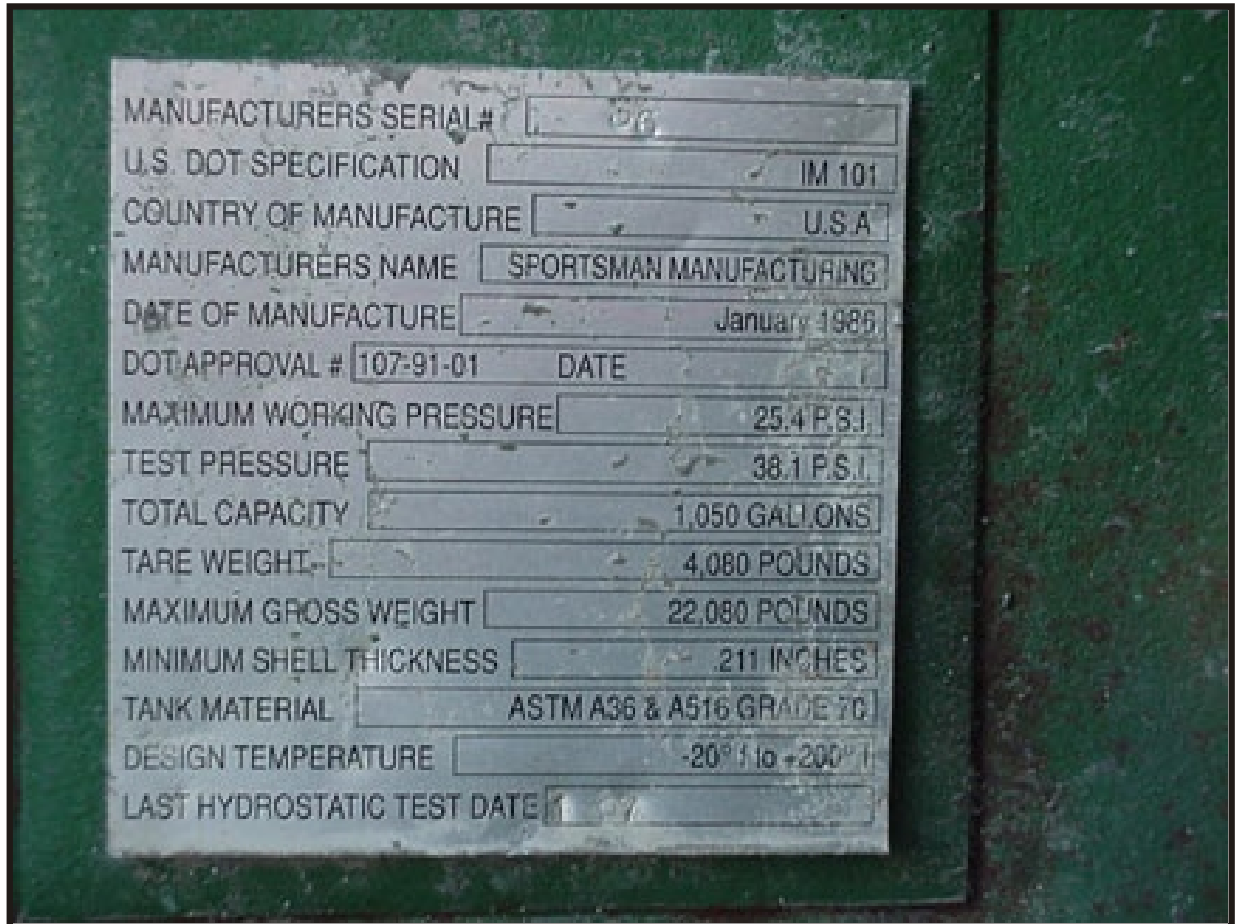 MANUFACTURERS SERIAL#
U.S. DOT SPECIFICATION IM 101
COUNTRY OF MANUFACTURE U.S.A
MANUFACTURERS NAME SPORTSMAN MANUFACTURING
DATE OF MANUFACTURE January 1986
DOT APPROVAL # 107-91-01 DATE
MAXIMUM WORKING PRESSURE 25.4 P.S.I.
TEST PRESSURE 38.1 P.S.I.
TOTAL CAPACITY 1,050 GALLONS
TARE WEIGHT 4,080 POUNDS
MAXIMUM GROSS WEIGHT 22,080 POUNDS
MINIMUM SHELL THICKNESS .211 INCHES
TANK MATERIAL ASTM A36 & A516 GRADE 70
DESIGN TEMPERATURE -20° f to +200° f
LAST HYDROSTATIC TEST DATE